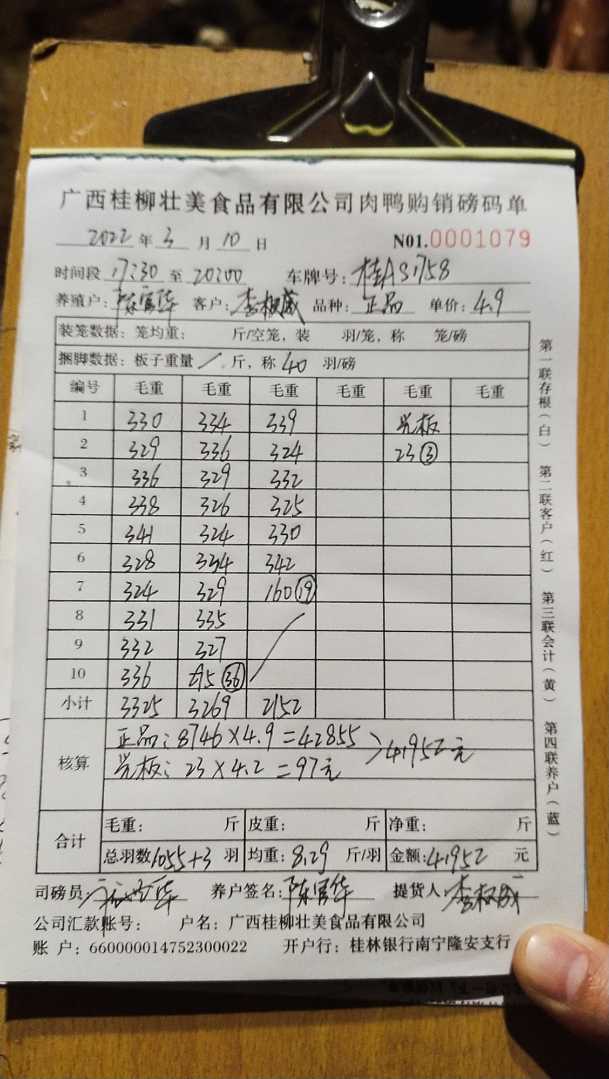 广西桂柳壮美食品有限公司肉鸭购销磅码单
2022 年 3 月 10 日 N01.0001079
时间段 17:30 至 20:00 车牌号: 桂AS1758
养殖户: 陈富华 客户: 李权威 品种: 正品 单价: 4.9
装笼数据: 笼均重: 斤/空笼, 装 羽/笼, 称 笼/磅
捆脚数据: 板子重量 / 斤, 称 40 羽/磅
编号 毛重 毛重 毛重 毛重 毛重 毛重
1 330 334 339
2 329 336 324 23 ③
3 336 329 332
4 338 326 325
5 341 324 330
6 328 334 342
7 324 329 160 ⑲
8 331 335
9 332 327
10 336 ㊱
小计 3325 3269 2152
核算 正品: 8746×4.9=42855
23×4.2=97元
41952元
合计 毛重: 斤 皮重: 斤 净重: 斤
总羽数 1055+3 羽 均重: 8.29 斤/羽 金额: 41952 元
司磅员: 养户签名: 陈富华 提货人: 李权威
公司汇款账号: 户名: 广西桂柳壮美食品有限公司
账 户: 660000014752300022 开户行: 桂林银行南宁隆安支行
第一联存根(白) 第二联客户(红) 第三联会计(黄) 第四联养户(蓝)